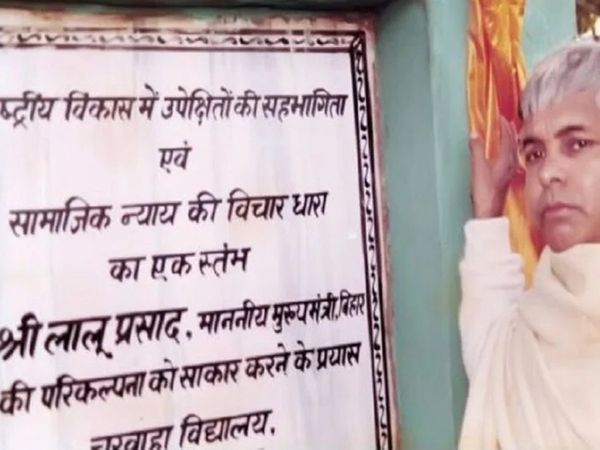 ष्ट्रीय विकास में उपेक्षितों की सहभागिता
एवं
सामाजिक न्याय की विचार धारा
का एक स्तंभ
श्री लालू प्रसाद, माननीय मुख्यमंत्री, बिहार
की परिकल्पना को साकार करने के प्रयास
चरवाहा विद्यालय,